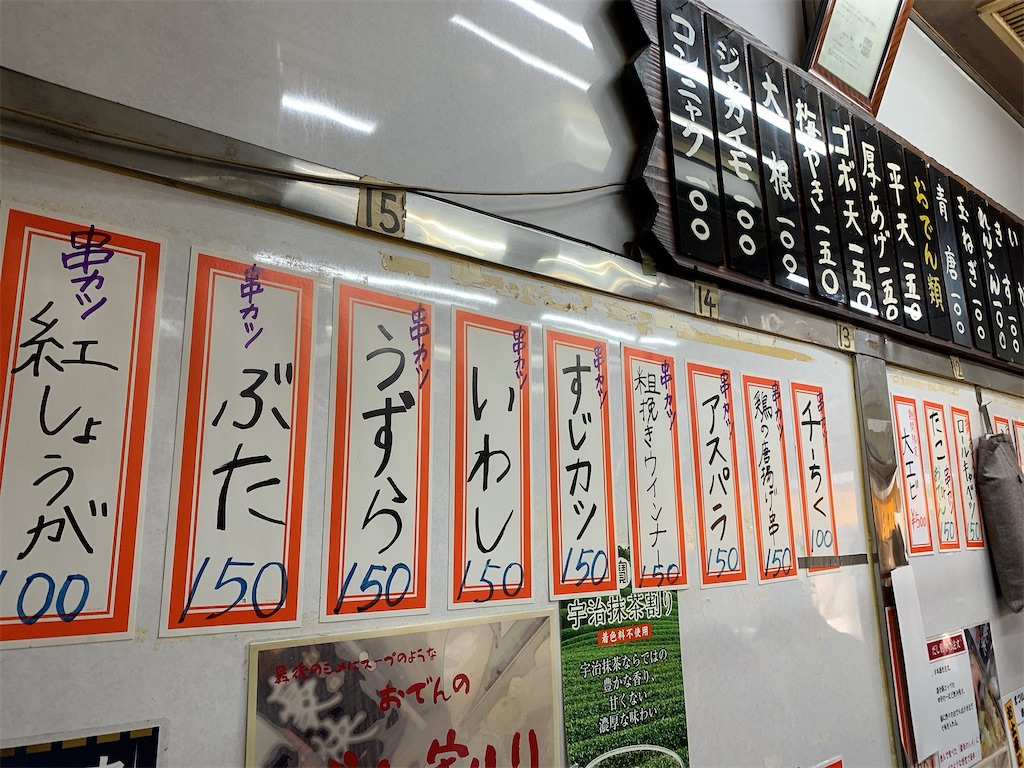 コンニャク 一〇〇
ジャガイモ 一〇〇
大根 一〇〇
梅やき 一五〇
ゴボ天 一五〇
厚あげ 一五〇
平天 一五〇
おでん類
青唐 一〇〇
玉ねぎ 一〇〇
れんこん 一〇〇
15
14
13
串カツ
紅しょうが
100
串カツ
ぶた
150
串カツ
うずら
150
串カツ
いわし
150
串カツ
すじカツ
150
串カツ
粗挽きウインナー
150
串カツ
アスパラ
150
串カツ
鶏の唐揚げ串
150
串カツ
チーちく
100
大エビ
¥500
たこ
150
ロールキャベツ
最後のシメにスープのような
おでんの
宇治抹茶割り
着色料不使用
宇治抹茶ならではの
豊かな香り、
甘くない
濃厚な味わい。